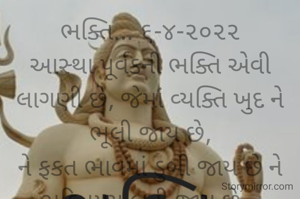 ભક્તિ ૬-૪-૨૦૨૨
આસ્થા પૂર્વકની ભક્તિ એવી
લાગણી છે, જેમાં વ્યક્તિ ખુદ ને
ભૂલી જાય છે,
ને ફકત ભાવમાં ડુબી જાય છે ને
Storymirror.com